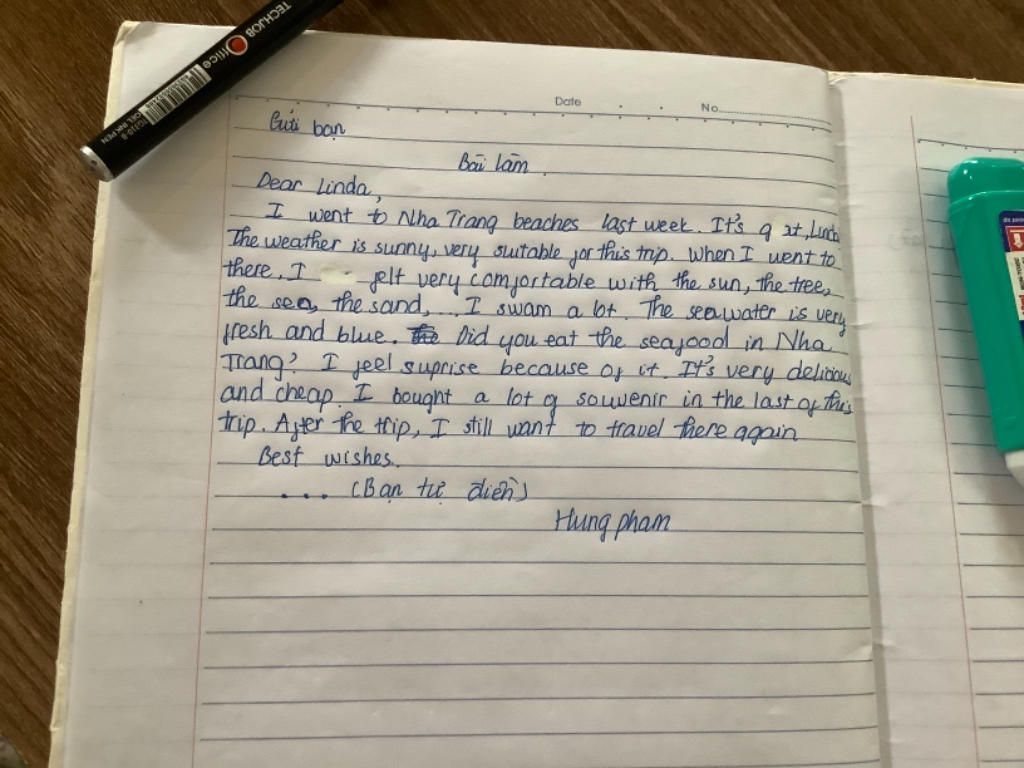 TECHJOB Office
GEL INK PEN
Date No.
Gửi bạn
Bài làm.
Dear Linda,
I went to Nha Trang beaches last week. It's, Linda
The weather is sunny, very suitable for this trip. When I went to
there, I felt very comfortable with the sun, the tree,
the sea, the sand,... I swam a lot. The sea water is very
fresh and blue. Did you eat the seafood in Nha
Trang? I feel suprise because of it. It's very delicious
and cheap. I bought a lot of souvenir in the last of this
trip. After the trip, I still want to travel there again
Best wishes.
... (Bạn tự điền)
Hung pham